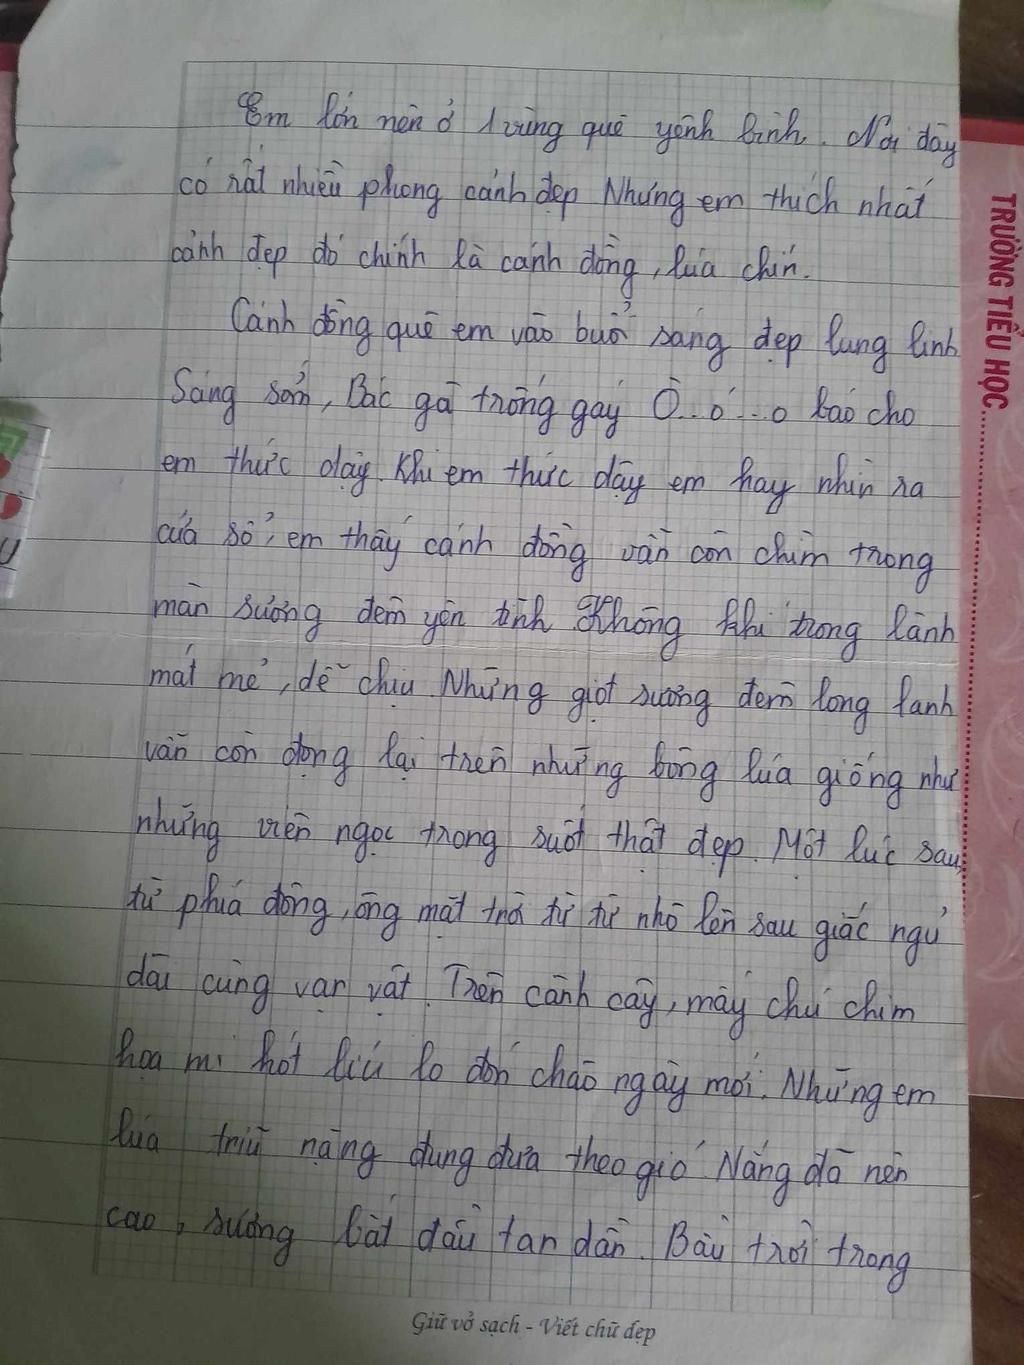 Em lớn nên ở 1 vùng quê yênh bình. Nơi đây
có rất nhiều phong cảnh đẹp Nhưng em thích nhất
cảnh đẹp đó chính là cánh đồng, lúa chín.
Cánh đồng quê em vào buổi sáng đẹp lung linh
Sáng sớm, Bác gà trống gáy Ò..ó...o báo cho
em thức dạy. Khi em thức dậy em hay nhìn ra
cửa sổ, em thấy cánh đồng vẫn còn chìm trong
màn sương đêm yên tĩnh Không khí trong lành
mát mẻ, dễ chịu. Những giọt sương đêm long lanh
vẫn còn đọng lại trên những bông lúa giống như
những viên ngọc trong suốt thật đẹp. Một lúc sau,
từ phía đông, ông mặt trời từ từ nhô lên sau giấc ngủ
dài cùng vạn vật. Trên cành cây, mấy chú chim
họa mi hót líu lo đón chào ngày mới. Những em
lúa trĩu nặng đung đưa theo gió Nắng đã nên
cao, sương bắt đầu tan dần. Bầu trời trong
Giữ vở sạch - Viết chữ đẹp
TRƯỜNG TIỂU HỌC